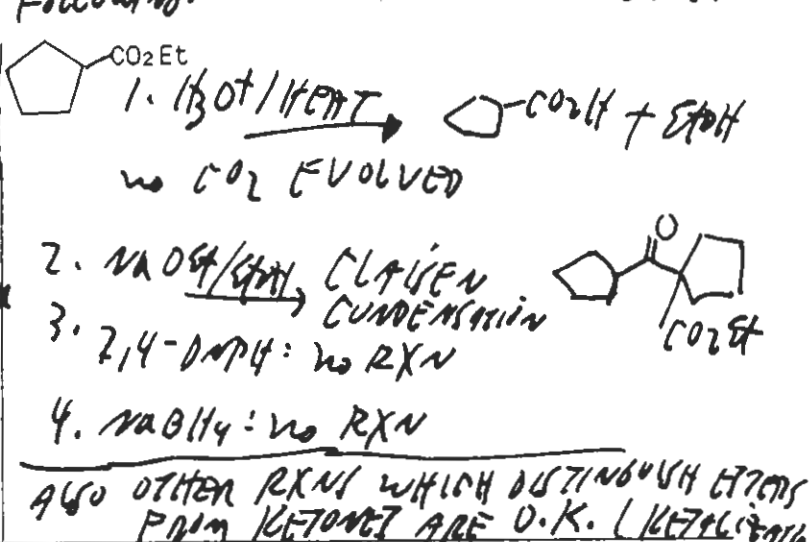 FOLLOWING.
CO2Et
1. H3O+/HEAT CO2H + EtOH
no CO2 EVOLVED
2. NaOEt/EtOH CLAISEN
CONDENSATION
O
CO2Et
3. 2,4-DNPH: no RXN
4. NaBH4: no RXN
ALSO OTHER RXNS WHICH DISTINGUISH ESTERS
FROM KETONES ARE O.K. (